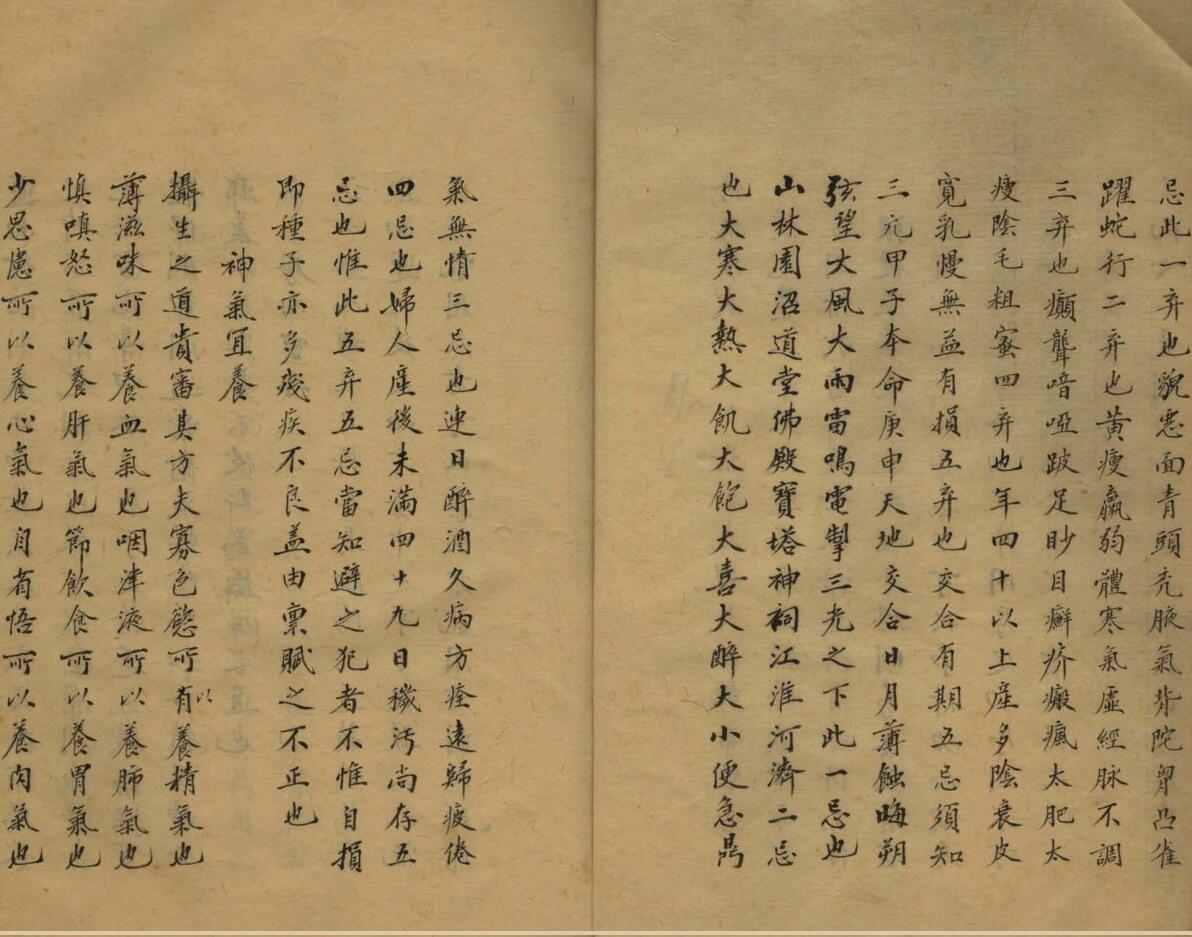 忌此一弃也貌惡面青頭禿腋氣背陀胷凸雀
躍蛇行二弃也黄瘦羸弱體寒氣虛經脉不調
三弃也癲聾喑啞跛足眇目癬疥瘢瘋太肥太
瘦陰毛粗蜜四弃也年四十以上産多陰衰皮
寬乳慢無益有損五弃也交合有期五忌須知
三元甲子本命庚申天地交合日月薄蝕晦朔
弦望大風大雨雷鳴電掣三光之下此一忌也
山林園沼道堂佛殿寶塔神祠江淮河濟二忌
也大寒大熱大飢大飽大喜大醉大小便急
氣無情三忌也連日醉酒久病方痊遠歸疲倦
四忌也婦人産後未滿四十九日穢汚尚存五
忌也惟此五弃五忌當知避之犯者不惟自損
即種子亦多殘疾不良盖由禀賦之不正也
神氣宜養
攝生之道貴審其方夫寡色慾可以有養精氣也
薄滋味可以養血氣也咽津液可以養肺氣也
慎嗔怒可以養肝氣也節飲食可以養胃氣也
少思慮可以養心氣也自省悟可以養內氣也